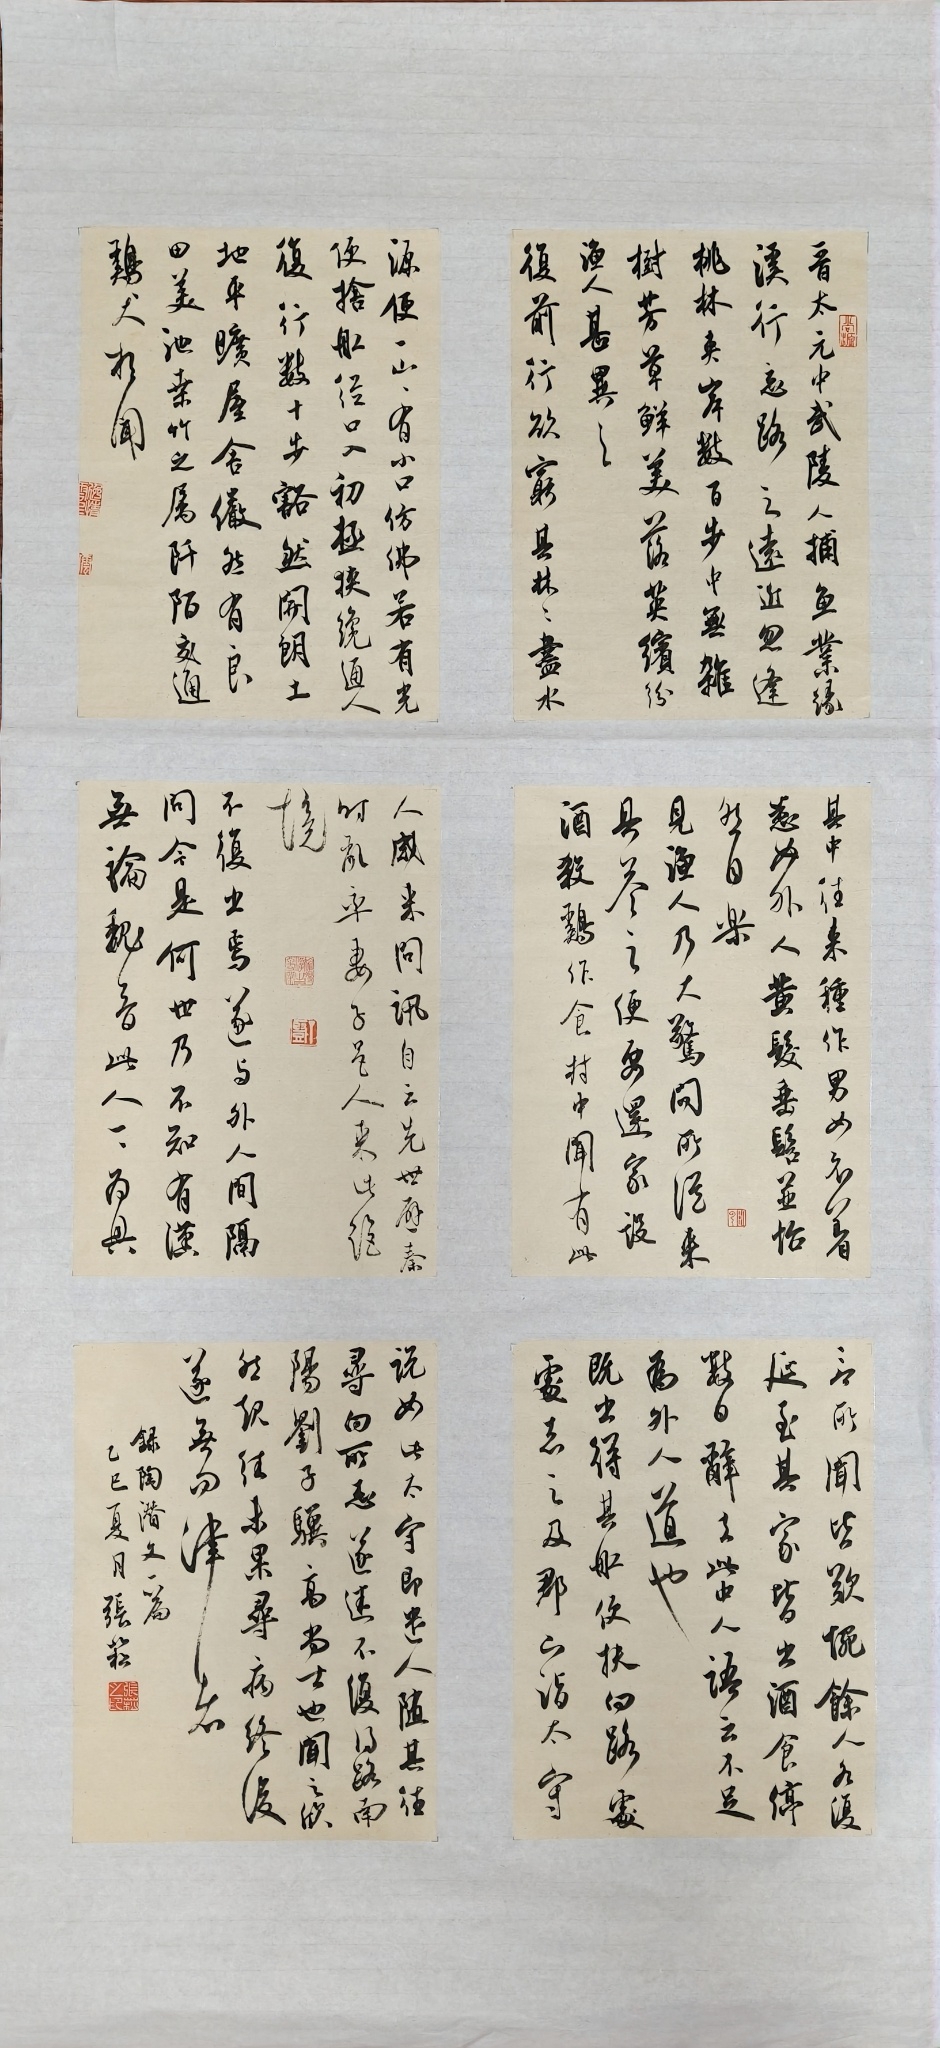 晋太元中武陵人捕魚業緣
溪行忘路之遠近忽逢
桃林夾岸數百步中無雜
樹芳草鮮美落英繽紛
漁人甚異之
復前行欲窮其林〻盡水
源便一山〻有小口仿佛若有光
便捨船從口入初極狹纔通人
復行數十步豁然開朗土
地平曠屋舍儼然有良
田美池桑竹之属阡陌交通
鷄犬相聞
其中往来種作男女衣著
悉如外人黄髮垂髫並怡
然自樂
見漁人乃大驚問所從来
具答之便要還家設
酒殺鷄作食村中聞有此
人咸来問訊自云先世避秦
時亂率妻子邑人来此絶
境
不復出焉遂与外人間隔
問今是何世乃不知有漢
無論魏晋此人一一為具
言所聞皆歎惋餘人各復
延至其家皆出酒食停
數日辭去此中人語云不足
為外人道也
既出得其船便扶向路處
處志之及郡下詣太守
説如此太守即遣人随其往
尋向所志遂迷不復得路南
陽劉子驥高尚士也聞之欣
然規往未果尋病終後
遂無問津者
録陶潜文一篇
乙巳夏月張菘